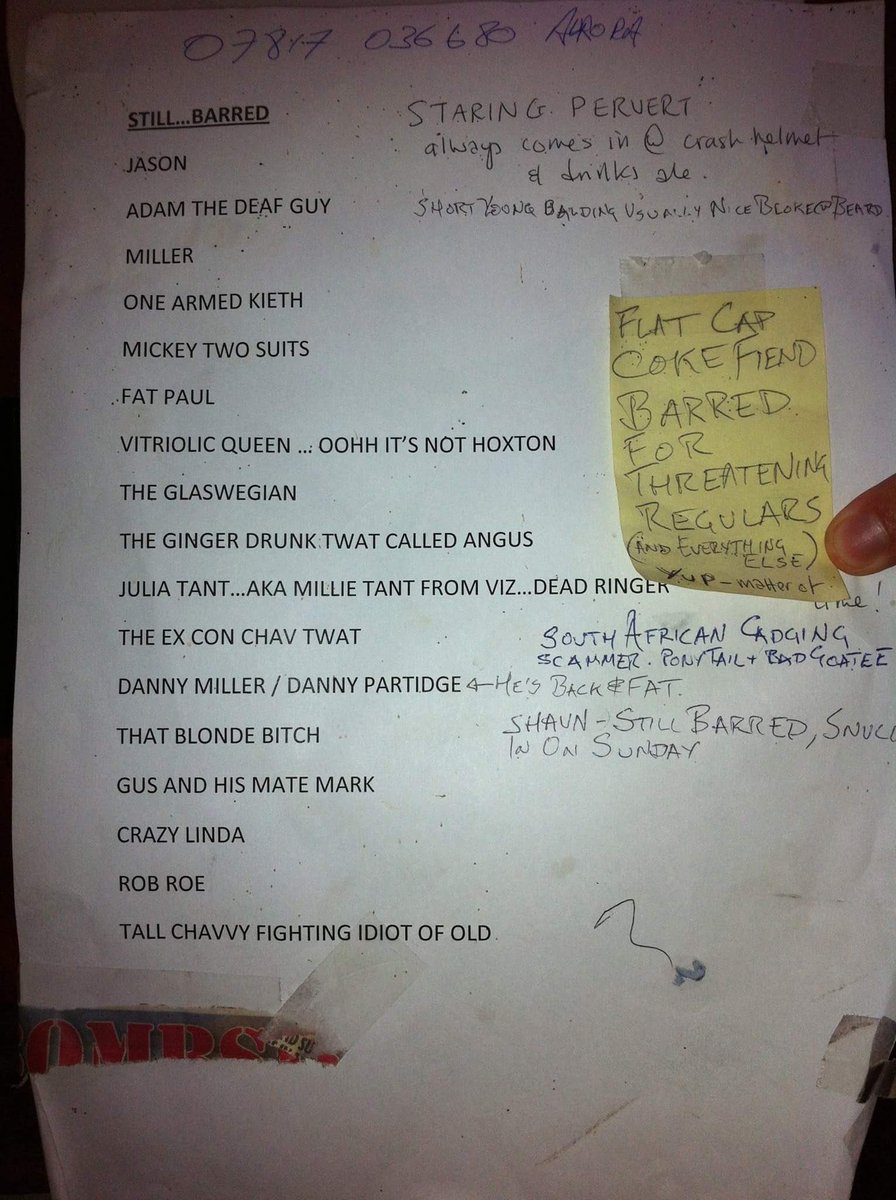 07817 036680 AURORA
STILL...BARRED
STARING PERVERT
always comes in @ crash helmet
& drinks ale.
JASON
ADAM THE DEAF GUY
SHORT YOUNG BALDING USUALLY NICE BLOKE @ BEARD
MILLER
ONE ARMED KIETH
MICKEY TWO SUITS
FAT PAUL
VITRIOLIC QUEEN ... OOHH IT'S NOT HOXTON
THE GLASWEGIAN
THE GINGER DRUNK TWAT CALLED ANGUS
JULIA TANT...AKA MILLIE TANT FROM VIZ...DEAD RINGER
THE EX CON CHAV TWAT
DANNY MILLER / DANNY PARTIDGE ← HE'S BACK & FAT.
THAT BLONDE BITCH
GUS AND HIS MATE MARK
CRAZY LINDA
ROB ROE
TALL CHAVVY FIGHTING IDIOT OF OLD
FLAT CAP
COKE FIEND
BARRED
FOR
THREATENING
REGULARS
(AND EVERYTHING
ELSE)
Yup - matter of
time!
SOUTH AFRICAN CADGING
SCAMMER. PONYTAIL + BAD GOATEE
SHAUN - STILL BARRED, SNUC
IN ON SUNDAY